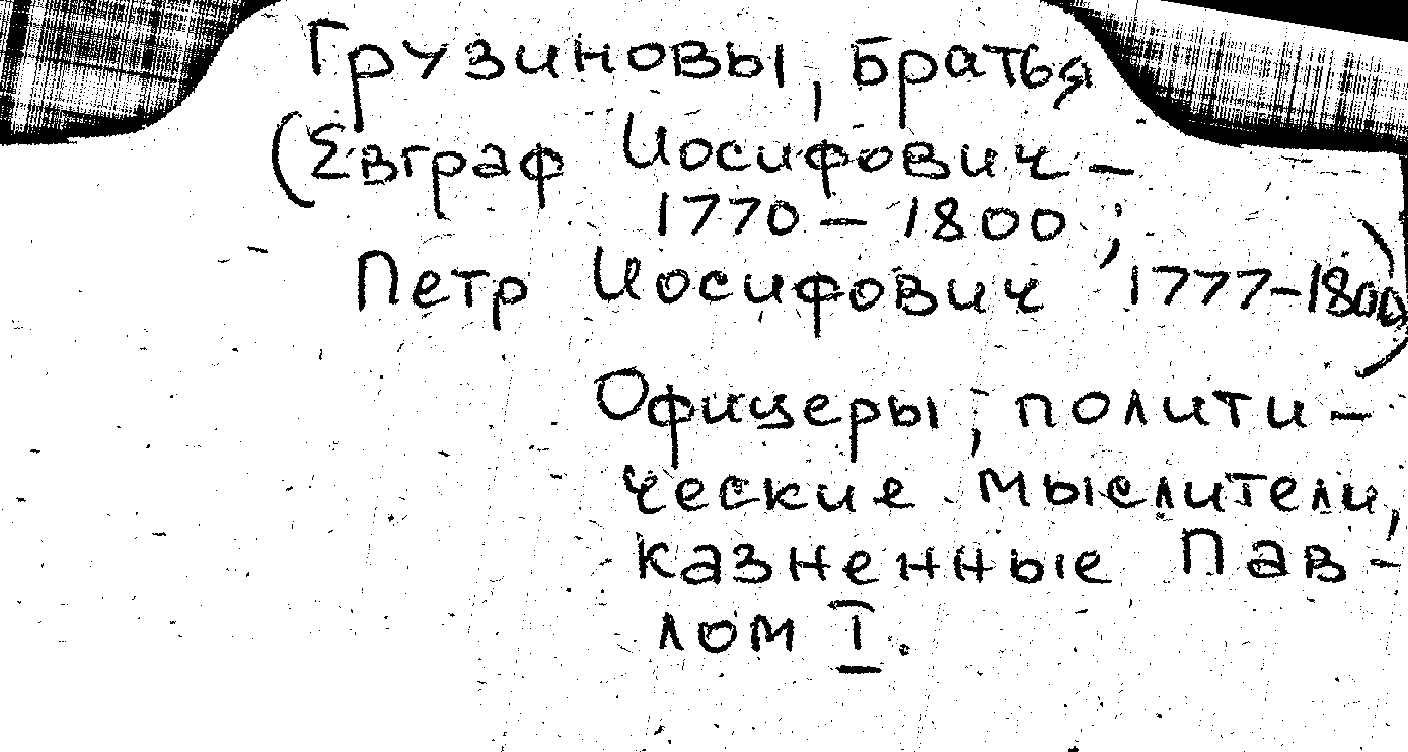 Грузиновы, братья
(Евграф Иосифович –
1770 – 1800;
Петр Иосифович 1777-1800)
Офицеры, полити-
ческие мыслители,
казненные Пав-
лом I.